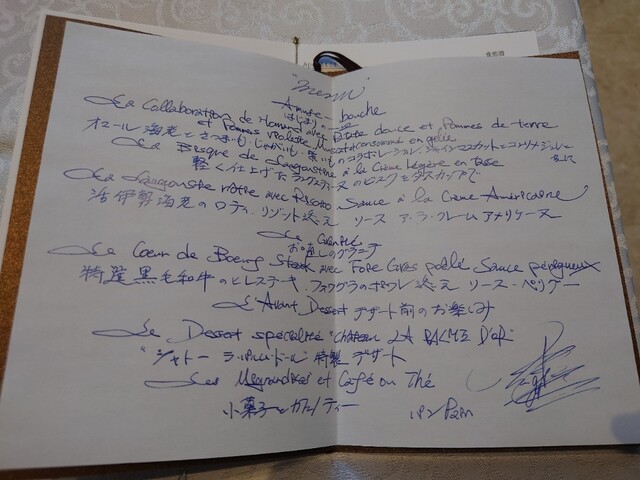 "menu"
Amuse-bouche
はじまりの一皿
La Collaboration de Homard avec Patate douce et Pommes de terre
et Pommes violette Muscat et consommé en gelée
オマール海老とさつまいも、じゃがいも、紫いものコラボレーション シャインマスカットとコンソメジュレ
La Bisque de Langoustine à la Crème légère en tasse
軽く仕上げたラングスティーヌのビスクをタスカップで
La Langouste rôtie avec Risotto, Sauce à la Crème Américaine
活伊勢海老のロティ、リゾット添え ソース ア・ラ・クレーム アメリケーヌ
Le Granité
お口直しのグラニテ
Le Cœur de Boeuf Steak avec Foie Gras poêlé Sauce périgueux
特選黒毛和牛のヒレステーキ、フォワグラのポワレ添え ソース・ペリグー
L'Avant Dessert デザート前のお楽しみ
Le Dessert spécialité "Château LA PALME D'OR"
"シャトー ラ・パルム・ドール" 特製 デザート
Les Mignardises et Café ou Thé
小菓子とカフェ/ティー パン/Pain